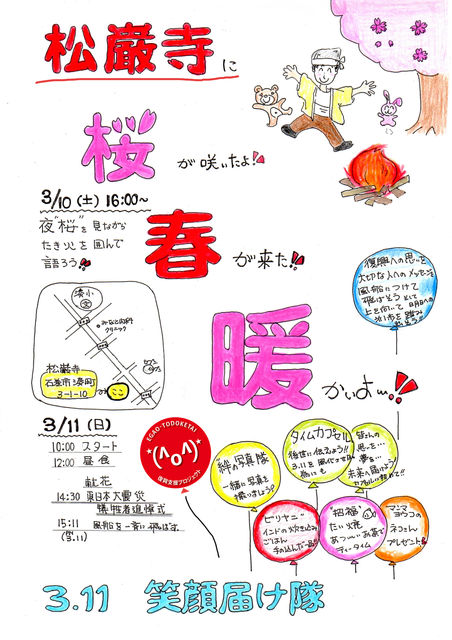 松巌寺に
桜が咲いたよ!!
3/10(土)16:00~
夜"桜"を見ながら
たき火を囲んで
語ろう!!
春が来た!!
湊小
みなと内科
クリニック
松巌寺
石巻市湊町
3-1-10
ここ
暖かいよ~!!
復興への思いを
大切な人へのメッセージを
風船につけて
飛ばそう そして
上を向いて 明日への
3/11(日)
10:00 スタート
12:00 昼食
献花
14:30 東日本大震災
犠牲者追悼式
15:11 風船を一斉に飛ばす。
EGAO-TODOKETAI
(^o^)
復興支援プロジェクト
"絆"の写真隊
一緒に写真を
撮りましょう♪
タイムカプセル
後世に伝えよう!!
3.11を風化させない
為にも
皆さんの
思いを…
夢を…
未来へ届けよう
"ビリヤニ"
インドの炊き込み
ごはん
手の込んだ一品!!
"招福"
たい焼
あつ~いお茶で
ティータイム
マンマ
ヨウコの
ネコさん
プレゼント
3.11 笑顔届け隊